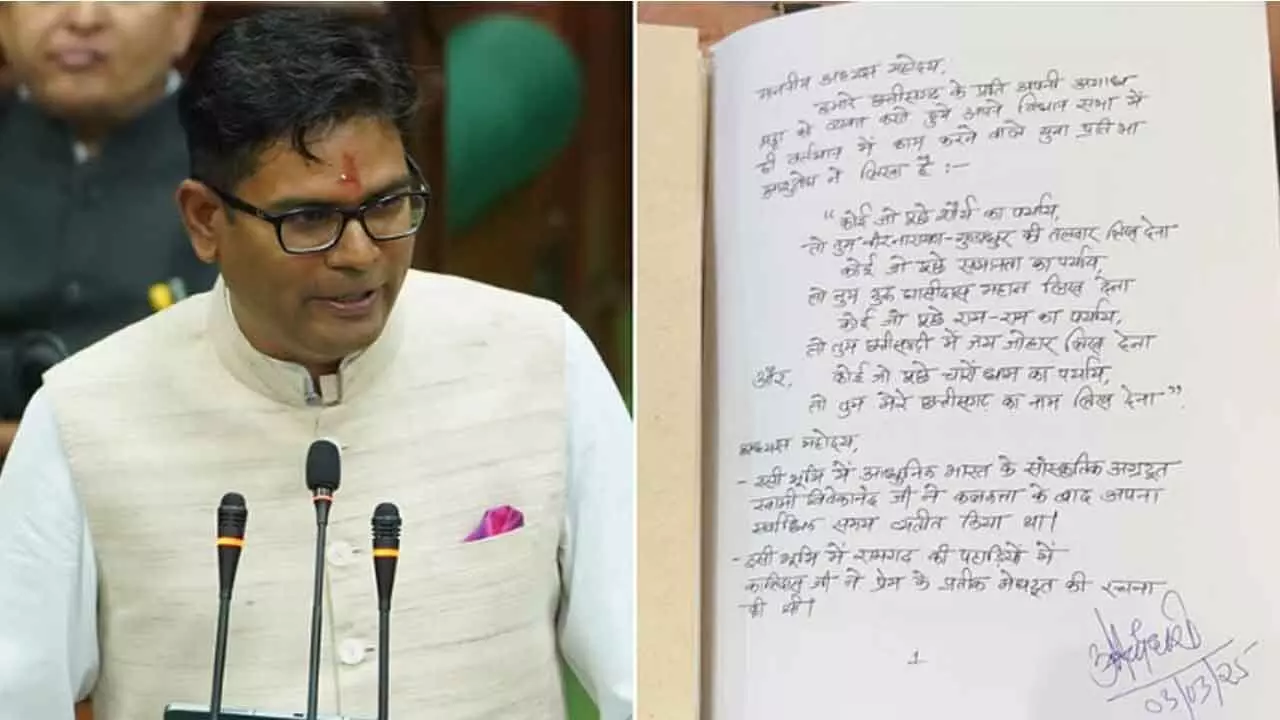 माननीय अध्यक्ष महोदय,
हमारे छत्तीसगढ़ के प्रति अपनी अगाध
श्रद्धा को व्यक्त करते हुये आपने विधान सभा में
ही वर्तमान में काम करने वाले युवा प्रतिभा
आशुतोष ने लिखा है :-
“कोई जो पूछे शौर्य का पर्याय,
तो तुम वीरनारायण-गुण्डाधुर की तलवार लिख देना
कोई जो पूछे समानता का पर्याय,
तो तुम गुरु घासीदास महान लिख देना
कोई जो पूछे राम-राम का पर्याय,
तो तुम छत्तीसगढ़ी में जय जोहार लिख देना
और, कोई जो पूछे चारों धाम का पर्याय,
तो तुम मेरे छत्तीसगढ़ का नाम लिख देना”.
अध्यक्ष महोदय,
- इसी भूमि में आधुनिक भारत के सांस्कृतिक अग्रदूत
स्वामी विवेकानंद जी ने कलकत्ता के बाद अपना
सर्वाधिक समय व्यतीत किया था।
- इसी भूमि में रामगढ़ की पहाड़ियों में
कालिदास जी ने प्रेम के प्रतीक मेघदूत की रचना
की थी।
1
03/03/25